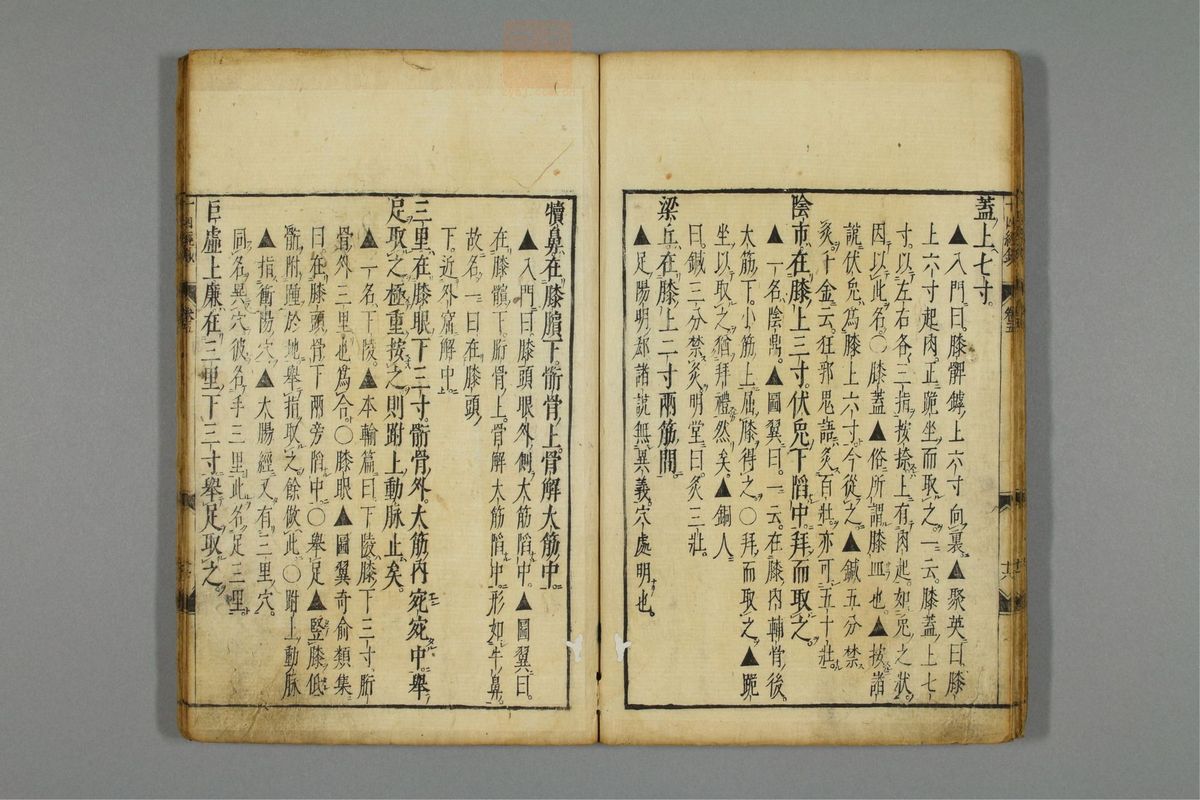 蓋上七寸
▲入門曰膝髀罅上六寸向裏▲聚英曰膝
上六寸起肉正跪坐而取之一云膝蓋上七
寸以左右各三指按捺上有肉起如兎之狀
因以此名○膝蓋▲俗所謂膝皿也▲按諸
說伏兎爲膝上六寸今從之▲鍼五分禁
灸千金云狂邪鬼語灸百壯亦可五十壯
陰市在膝上三寸伏兎下陷中拜而取之
▲一名陰鼎▲圖翼曰一云在膝內輔骨後
大筋下小筋上屈膝得之○拜而取之▲跪
坐以取之猶拜禮然矣▲銅人
曰鍼三分禁灸明堂曰灸三壯
梁丘在膝上二寸兩筋間
▲足陽明郄諸說無異義穴處明也
犢鼻在膝臏下䯒骨上骨解大筋中
▲入門曰膝頭眼外側大筋陷中▲圖翼曰
在膝臏下胻骨上骨解大筋陷中形如牛鼻
故名一曰在膝頭
下近外𥧌解中
三里在膝眼下三寸䯒骨外大筋內宛宛中舉
足取之極重按之則跗上動脉止矣
▲一名下陵▲本輸篇曰下陵膝下三寸胻
骨外三里也爲合○膝眼▲圖翼奇俞類集
曰在膝頭骨下兩旁陷中○舉足▲竪膝低
䯒附踵於地舉指取之餘倣此○跗上動脉
▲指衝陽穴▲大腸經又有三里穴
同名異穴彼名手三里此名足三里
巨虛上廉在三里下三寸舉足取之